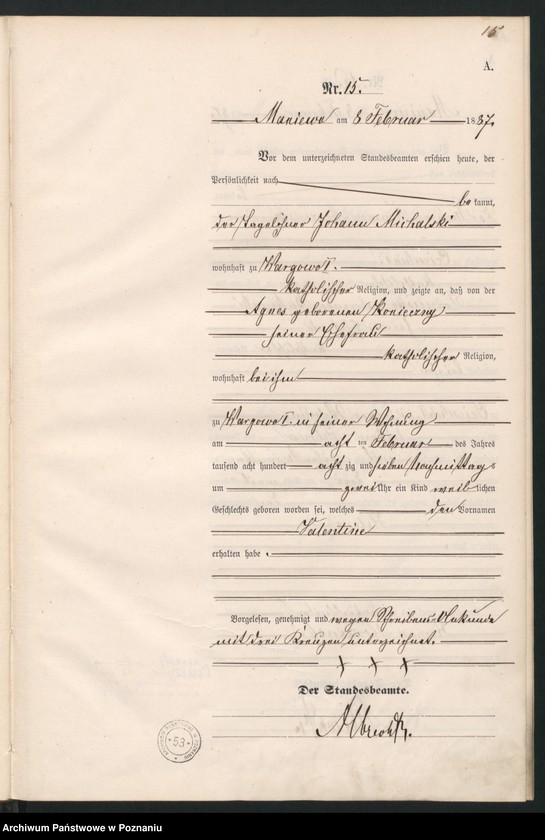 15
A.
Nr. 15.
Maniewo am 8 Februar 1887.
Vor dem unterzeichneten Standesbeamten erschien heute, der
Persönlichkeit nach
bekannt,
der Tagelöhner Johann Michalski
wohnhaft zu Wargowo I.
katholischer Religion, und zeigte an, daß von der
Agnes geborenen Konieczny
seiner Ehefrau
katholischer Religion,
wohnhaft bei ihm
zu Wargowo I. in seiner Wohnung
am acht ten Februar des Jahres
tausend acht hundert achtzig und sieben Nachmittags
um zwei Uhr ein Kind weiblichen
Geschlechts geboren worden sei, welches den Vornamen
Valentine
erhalten habe.
Vorgelesen, genehmigt und wegen Schreibens-Unkunde
mit drei Kreuzen unterzeichnet.
+ + +
Der Standesbeamte.
Albrecht
53
Archiwum Państwowe w Poznaniu